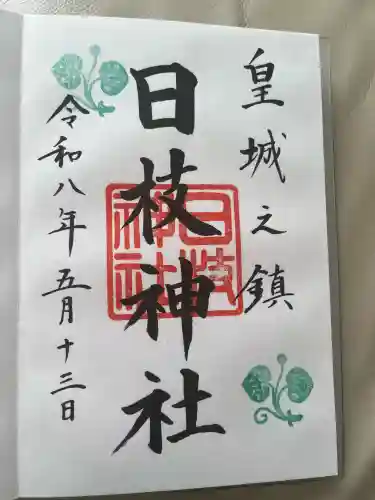 皇城之鎮
日枝神社
日枝神社
令和八年五月十三日